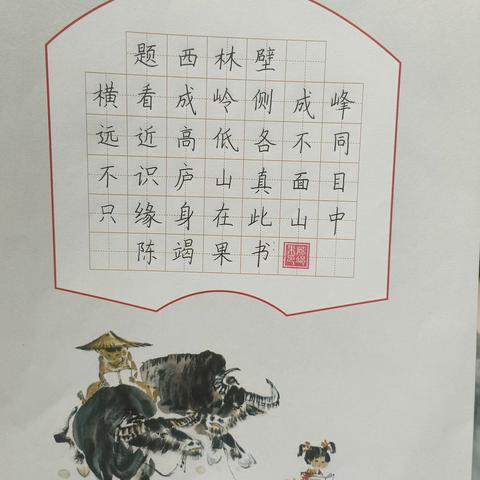 题西林壁
横看成岭侧成峰
远近高低各不同
不识庐山真面目
只缘身在此山中
陈竭果书